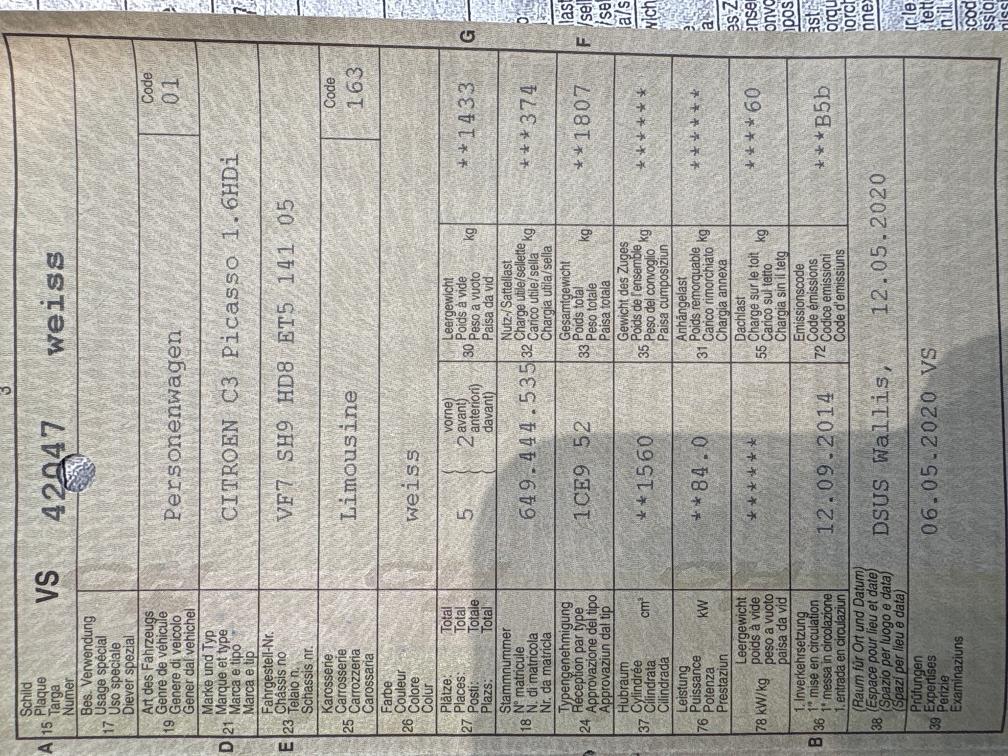 3
A 15
Schild
Plaque
Targa
Numer
VS 42047 weiss
17
Bes. Verwendung
Usage spécial
Uso speciale
Diever spezial
19
Art des Fahrzeugs
Genre de véhicule
Genere di veicolo
Gener dal vehichel
Personenwagen
Code
01
D 21
Marke und Typ
Marque et type
Marca e tipo
Marca e tip
CITROEN C3 Picasso 1.6HDi
E 23
Fahrgestell-Nr.
Châssis no
Telaio n.
Schassis nr.
VF7 SH9 HD8 ET5 141 05
25
Karosserie
Carrosserie
Carrozzeria
Carossaria
Limousine
Code
163
26
Farbe
Couleur
Colore
Colur
weiss
27
Plätze: Total
Places: Total
Posti: Totale
Plazs: Total
5
2
vorne)
avant)
anteriori)
davant)
30
Leergewicht
Poids à vide
Peso a vuoto
Paisa da vid
kg
**1433
G
18
Stammnummer
N° matricule
N. di matricola
Nr. da matricla
649.444.535
32
Nutz-/Sattellast
Charge utile/sellette
Carico utile/ sella
Chargia utila/sella
kg
***374
24
Typengenehmigung
Réception par type
Approvazione del tipo
Approvaziun dal tip
1CE9 52
33
Gesamtgewicht
Poids total
Peso totale
Paisa totala
kg
**1807
F
37
Hubraum
Cylindrée
Cilindrata
Cilindrada
cm³
**1560
35
Gewicht des Zuges
Poids de l'ensemble
Peso del convoglio
Paisa cumposiziun
kg
*******
76
Leistung
Puissance
Potenza
Prestaziun
kW
**84.0
31
Anhängelast
Poids remorquable
Carico rimorchiato
Chargia annexa
kg
*******
78 kW/kg
Leergewicht
poids à vide
peso a vuoto
paisa da vid
******
55
Dachlast
Charge sur le toit
Carico sul tetto
Chargia sin il tetg
kg
*****60
B 36
1.Inverkehrsetzung
1re mise en circulation
1a messa in circolazione
1.entrada en circulaziun
12.09.2014
72
Emissionscode
Code émissions
Codice emissioni
Code d'emissiuns
***B5b
38
(Raum für Ort und Datum)
(Espace pour lieu et date)
(Spazio per luogo e data)
(Spazi per lieu e data)
DSUS Wallis, 12.05.2020
39
Prüfungen
Expertises
Perizie
Examinaziuns
06.05.2020 VS